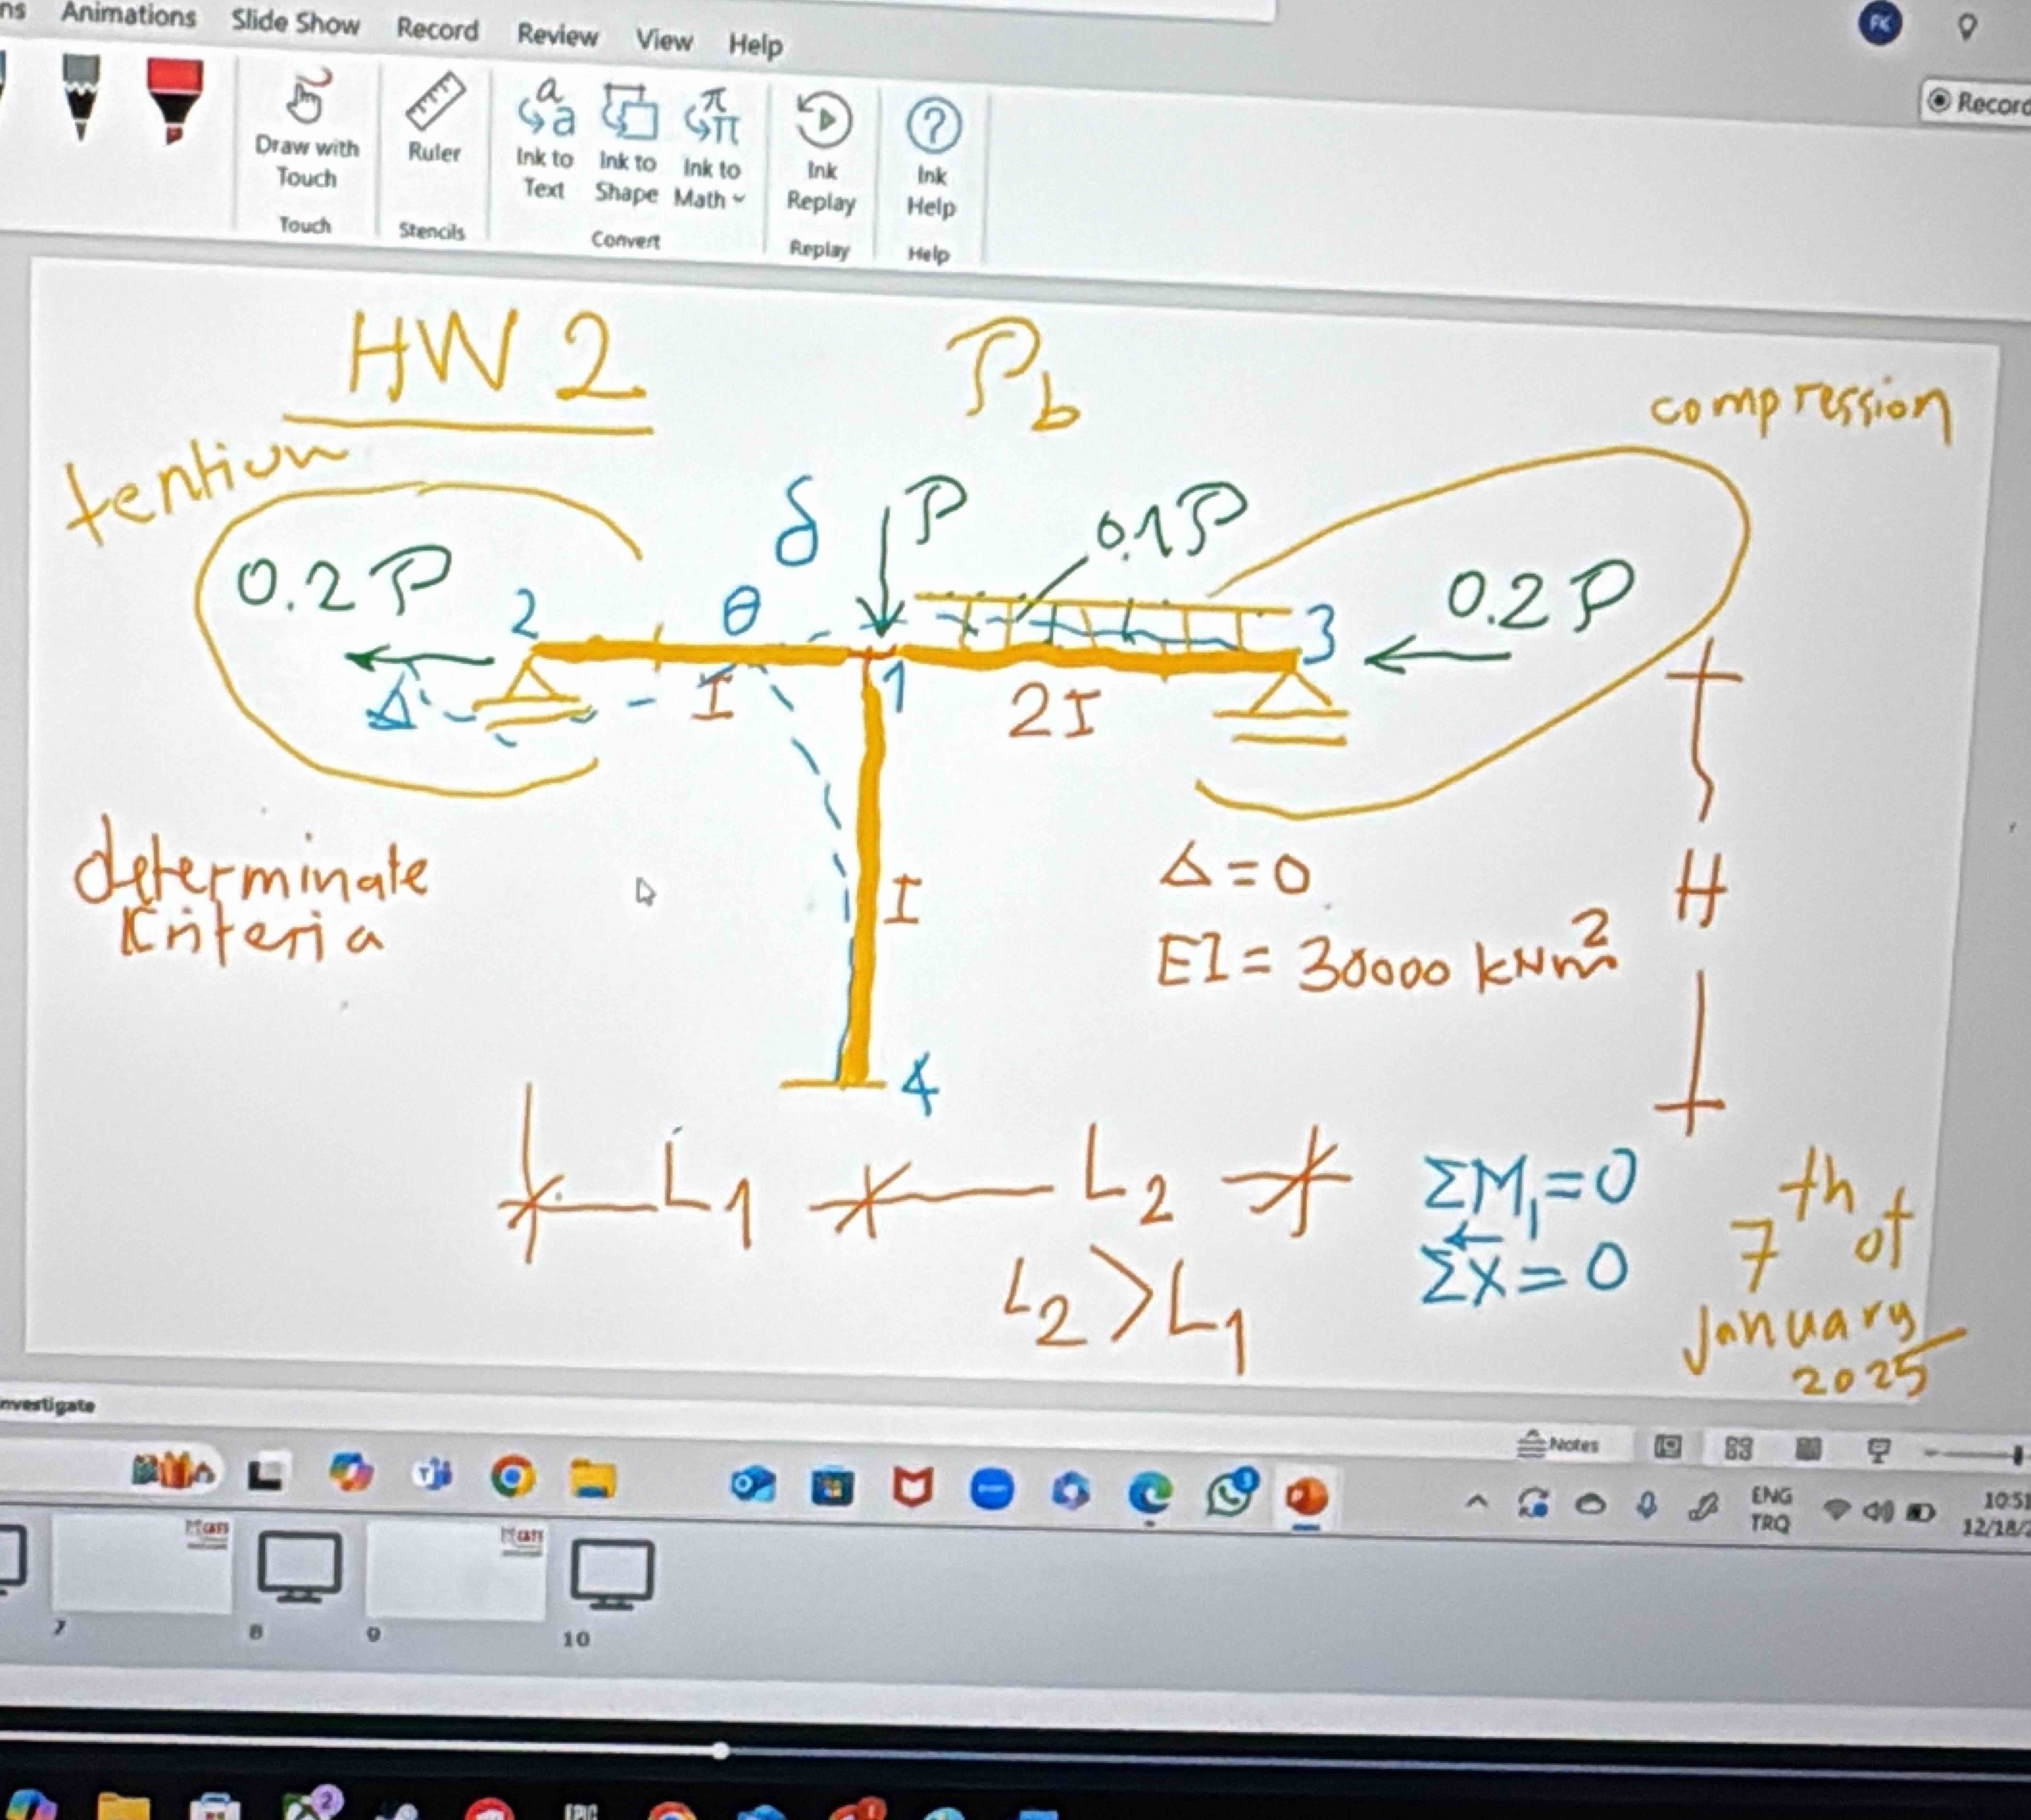 ns Animations Slide Show Record Review View Help
FK
Record
Draw with Touch
Ruler
Ink to Text
Ink to Shape
Ink to Math
Ink Replay
Ink Help
Touch
Stencils
Convert
Replay
Help
HW 2
P_b
compression
tentium
δ
P
0.1P
0.2P
2
θ
3
0.2P
Δ
I
1
2I
determinate
Kriteria
I
Δ=0
H
EI = 30000 kNm²
4
L₁
L₂
ΣM₁=0
ΣX=0
L₂>L₁
7th of
January
2025
nvestigate
Notes
ENG
TRQ
10:51
12/18/2
7
8
9
10
2